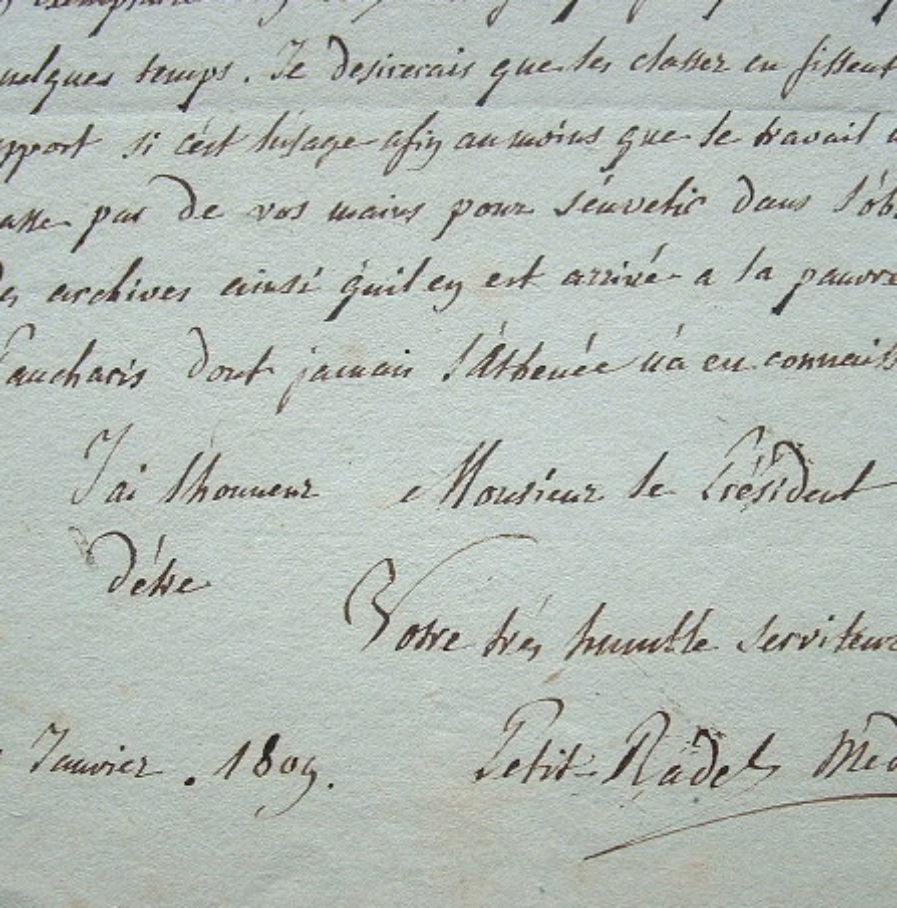 uelques temps. Je desirerais que les classes en fissent
pport si c'est l'usage afin au moins que le travail
asse par de vos mains pour s'envelir dans l'ob
es archives ainsi qu'il en est arrivé a la pauvre
Pancharis dont jamais l'Athenée n'a eu connaiss
J'ai l'honneur Monsieur le Président
d'étre
Votre trés humble serviteur
Janvier. 1809.
Petit-Radel Med